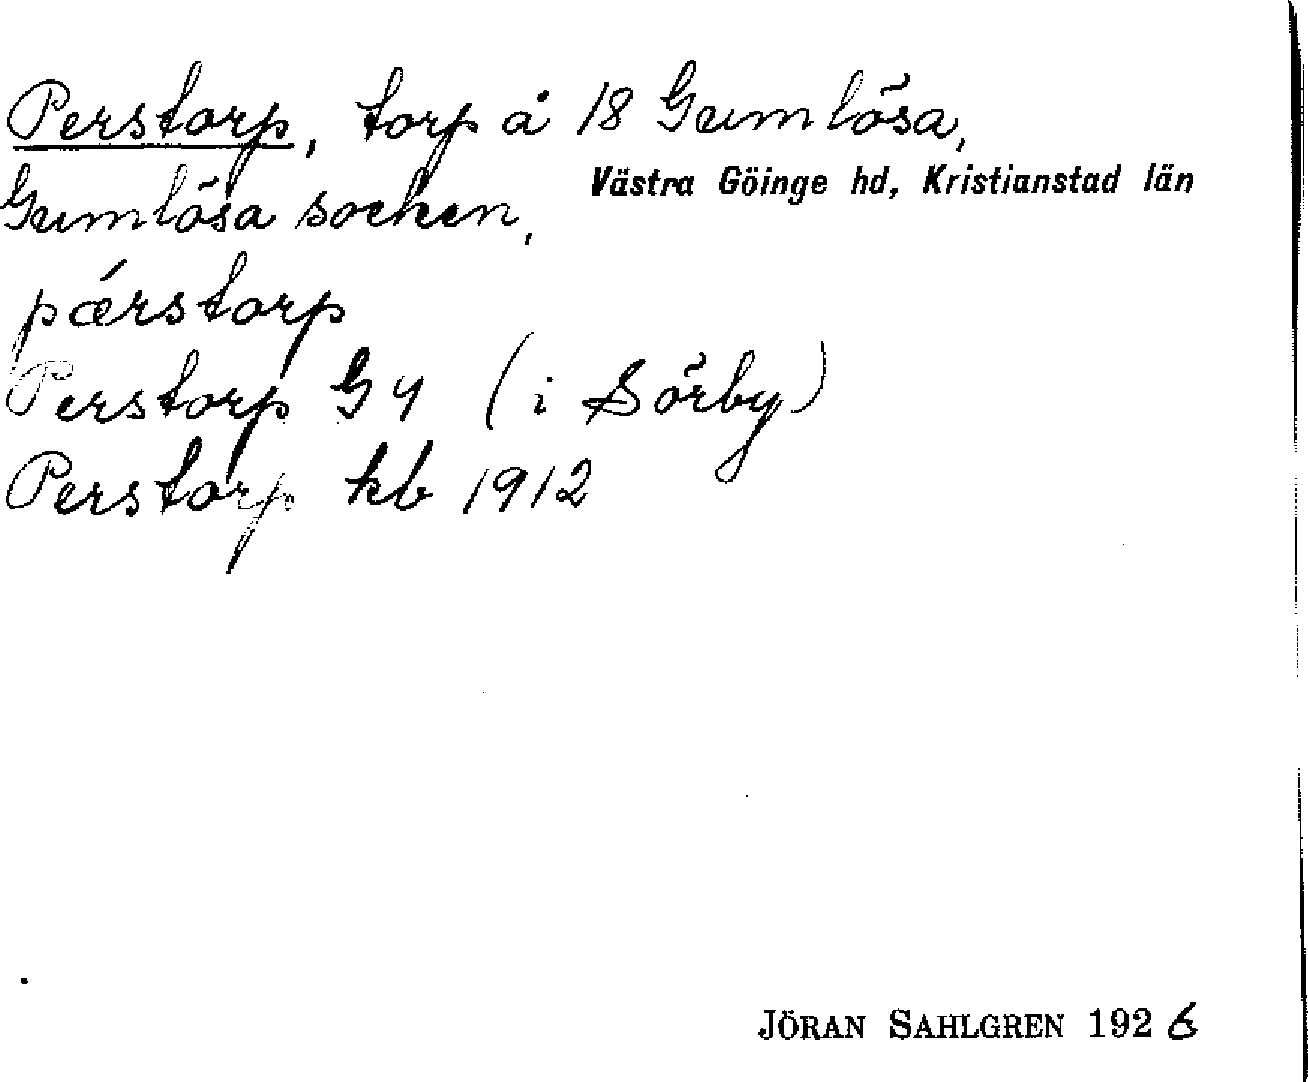 Perstorp, torp å 18 Gumlösa,
Västra Göinge hd, Kristianstad län
Gumlösa socken,
pǽrstorp
Perstorp G4 (i Sörby)
Perstorp kb 1912
JÖRAN SAHLGREN 1926